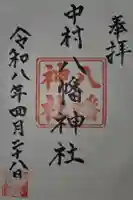 奉拝
中村八幡神社
八幡神社
令和八年四月二十八日